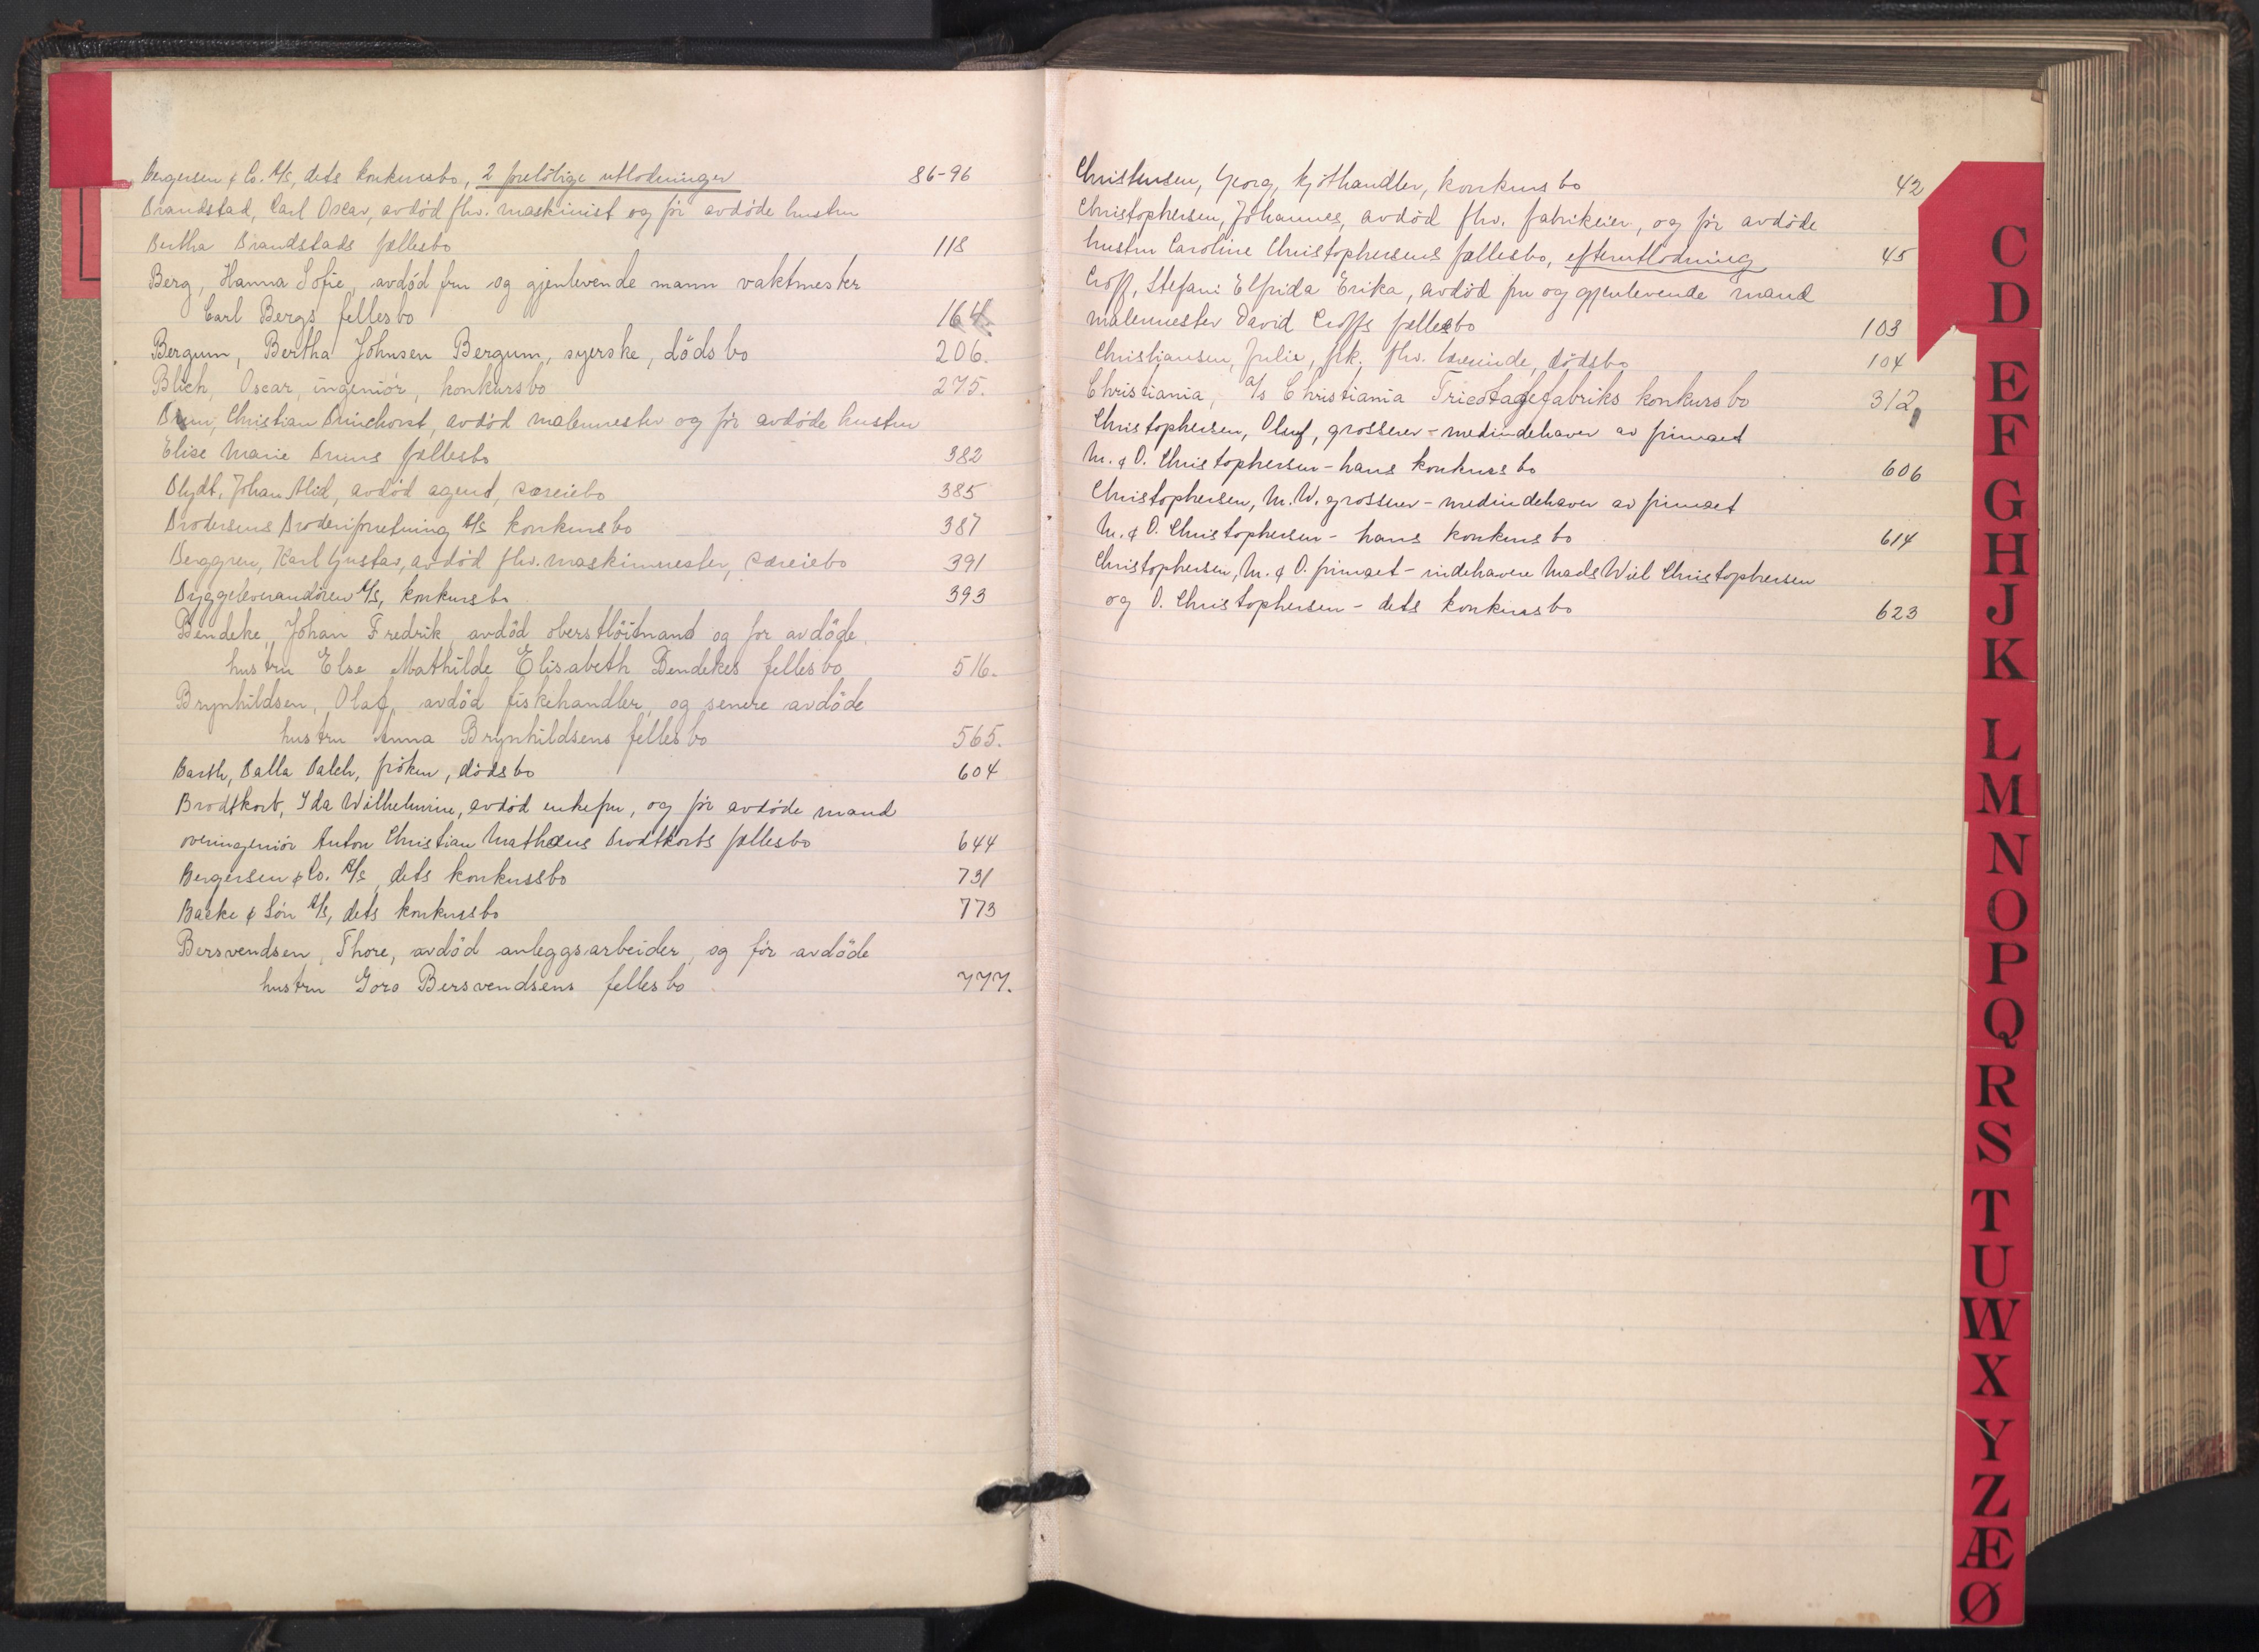 Bergersen & Co. A/S, dets konkursbo, 2 foreløbige utlodninger 86-96
Brandstad, Carl Oscar, avdød fhv. maskinist og før avdøde hustru
Bertha Brandstads fællesbo 118
Berg, Hanna Sofie, avdød fru og gjenlevende mann vaktmester
Carl Bergs fellesbo 164
Bergum, Bertha Johnsen Bergum, syerske, dödsbo 206.
Blich, Oscar, ingeniör, konkursbo 275.
Brun, Christian Brinchorst, avdød malermester og før avdøde hustru
Elise Marie Bruns fællesbo 382
Blydt, Johan Alid, avdød agent, særeiebo 385
Brodersens Broderiforretning A/S konkursbo 387
Berggren, Karl Gustav, avdød fhv. maskinmester, særeiebo 391
Byggeleverandøren A/S, konkursbo 393
Bendeke, Johan Fredrik, avdöd oberstlöitnant og för avdöde
hustru Else Mathilde Elisabeth Bendekes fellesbo 516.
Brynhildsen, Olaf, avdöd fiskehandler, og senere avdöde
hustru Anna Brynhildsens fellesbo 565.
Barth, Balla Balch, frøken, dødsbo 604
Brodtkorb, Ida Wilhelmine, avdød enkefru, og før avdøde mand
overingeniør Anton Christian Mathæus Brodtkorbs fællesbo 644
Bergersen & Co. A/S, dets konkursbo 731
Barke & Søn A/S, dets konkursbo 773
Bersvendsen, Thore, avdöd anleggsarbeider, og för avdöde
hustru Goro Bersvendsens fellesbo 777.
Christensen, Georg, kjøthandler, konkursbo 42
Christophersen, Johannes, avdød fhv. fabrikeier, og før avdøde
hustru Caroline Christophersens fællesbo, efterutlodning 45
Croff, Stefani Elfrida Erika, avdød fru og gjenlevende mand
malermester David Croffs fællesbo 103
Christiansen, Julie, frk. fhv. lærerinde, dødsbo 104
Christiania, A/S Christiania Tricotagefabriks konkursbo 312
Christophersen, Oluf, grosserer - medindehaver av firmaet
M. & O. Christophersen - hans konkursbo 606
Christophersen, M. W. grosserer - medindehaver av firmaet
M. & O. Christophersen - hans konkursbo 614
Christophersen, M. & O. firmaet - indehavere Mads Wiel Christophersen
og O. Christophersen - dets konkursbo 623
C
D
E
F
G
H
J
K
L
M
N
O
P
Q
R
S
T
U
W
X
Y
Z
Æ
Ø